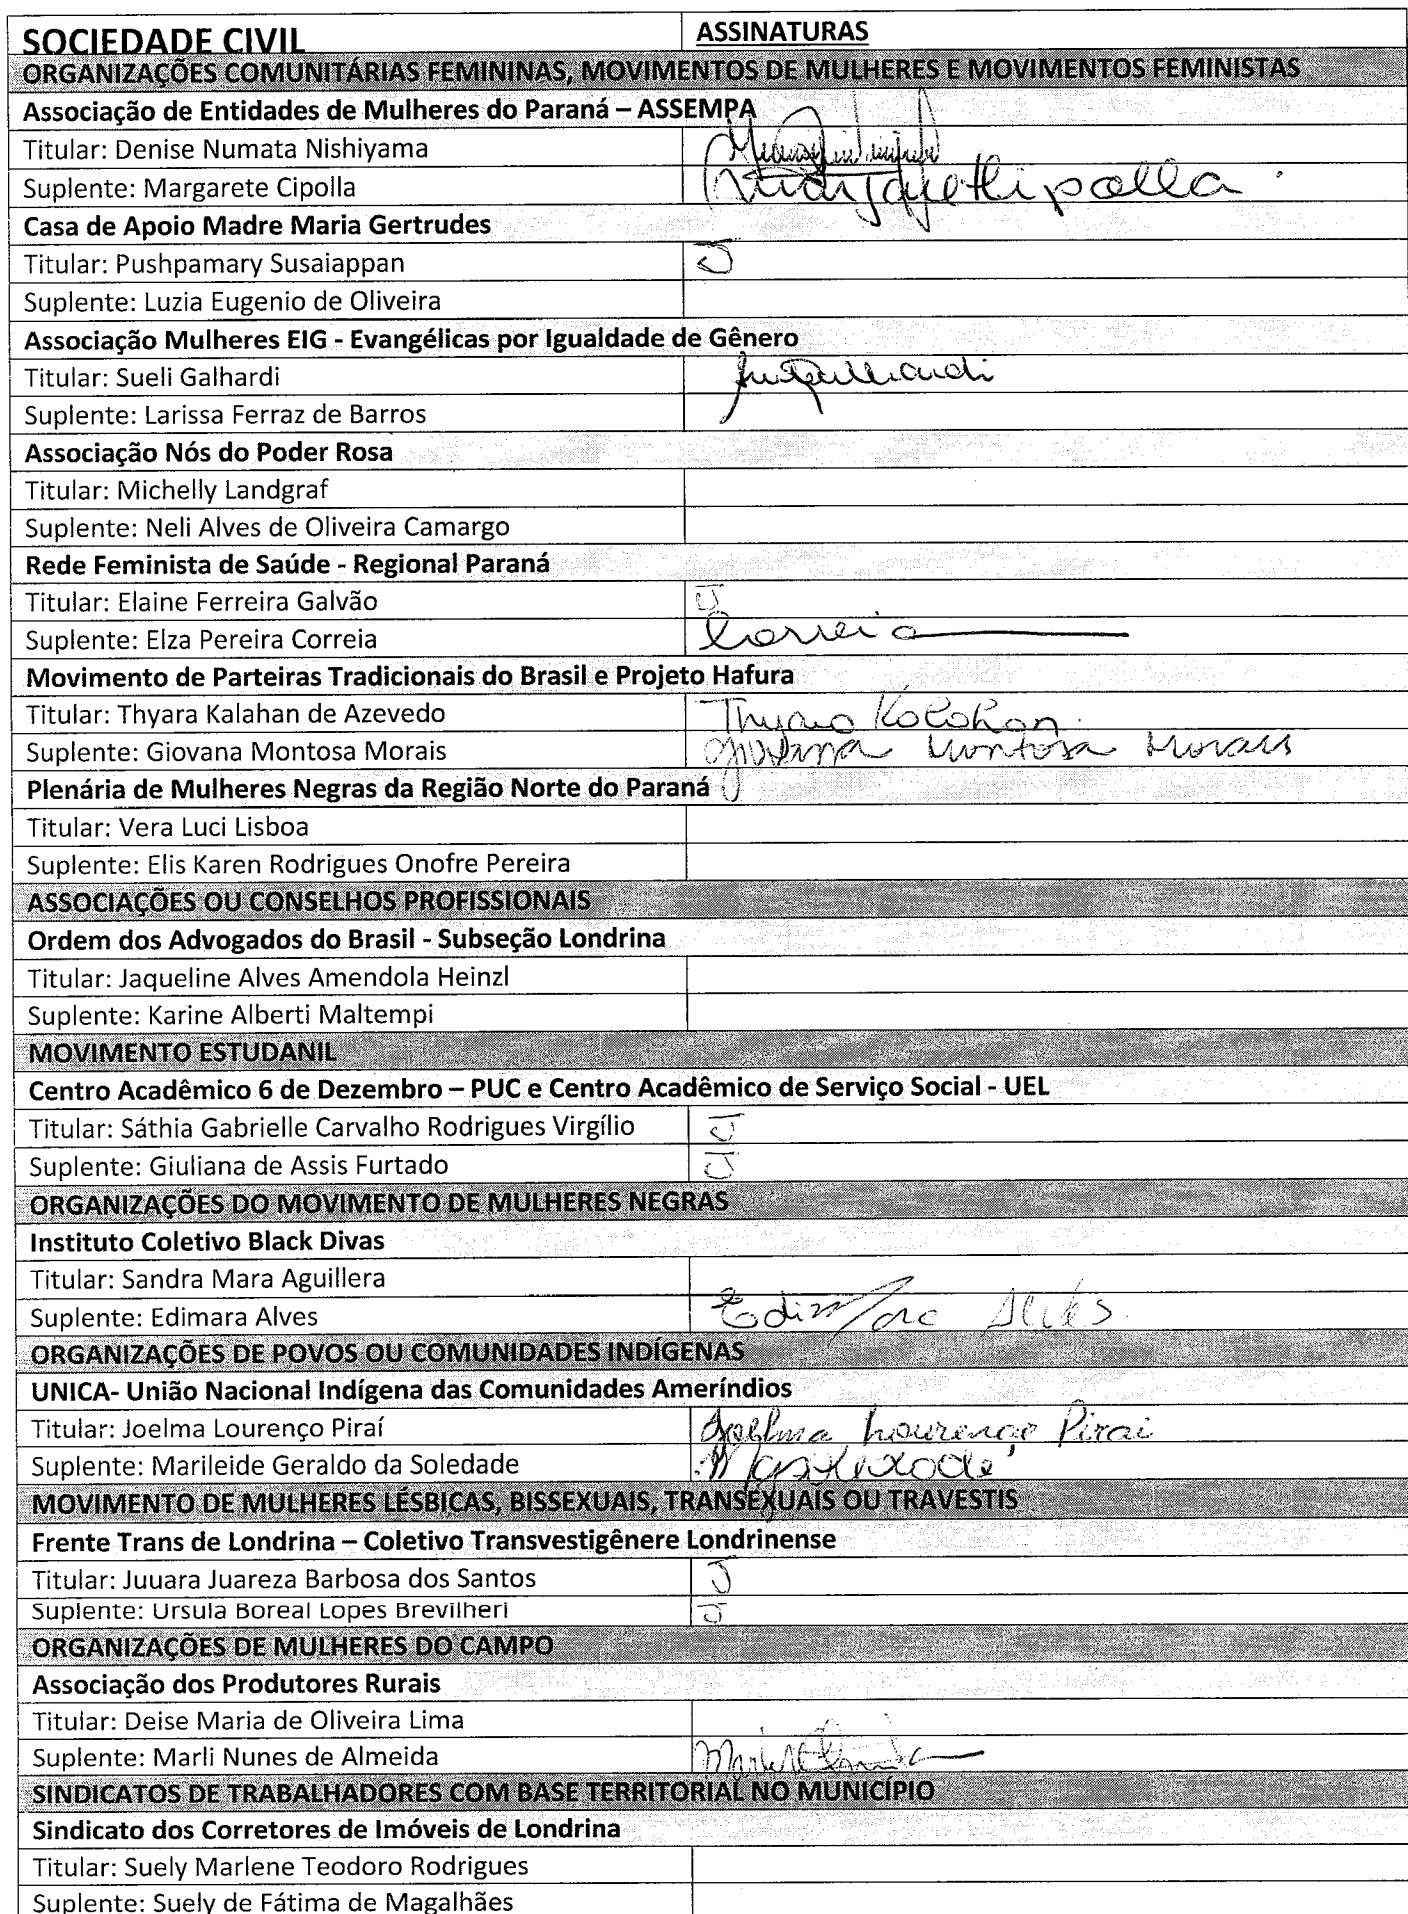 SOCIEDADE CIVIL
ASSINATURAS
ORGANIZAÇÕES COMUNITÁRIAS FEMININAS, MOVIMENTOS DE MULHERES E MOVIMENTOS FEMINISTAS
Associação de Entidades de Mulheres do Paraná – ASSEMPA
Titular: Denise Numata Nishiyama
Suplente: Margarete Cipolla
Casa de Apoio Madre Maria Gertrudes
Titular: Pushpamary Susaiappan J
Suplente: Luzia Eugenio de Oliveira
Associação Mulheres EIG - Evangélicas por Igualdade de Gênero
Titular: Sueli Galhardi
Suplente: Larissa Ferraz de Barros
Associação Nós do Poder Rosa
Titular: Michelly Landgraf
Suplente: Neli Alves de Oliveira Camargo
Rede Feminista de Saúde - Regional Paraná
Titular: Elaine Ferreira Galvão J
Suplente: Elza Pereira Correia Correia
Movimento de Parteiras Tradicionais do Brasil e Projeto Hafura
Titular: Thyara Kalahan de Azevedo Thyara Kalahan
Suplente: Giovana Montosa Morais Giovana Montosa Morais
Plenária de Mulheres Negras da Região Norte do Paraná
Titular: Vera Luci Lisboa
Suplente: Elis Karen Rodrigues Onofre Pereira
ASSOCIAÇÕES OU CONSELHOS PROFISSIONAIS
Ordem dos Advogados do Brasil - Subseção Londrina
Titular: Jaqueline Alves Amendola Heinzl
Suplente: Karine Alberti Maltempi
MOVIMENTO ESTUDANIL
Centro Acadêmico 6 de Dezembro – PUC e Centro Acadêmico de Serviço Social - UEL
Titular: Sáthia Gabrielle Carvalho Rodrigues Virgílio J
Suplente: Giuliana de Assis Furtado J
ORGANIZAÇÕES DO MOVIMENTO DE MULHERES NEGRAS
Instituto Coletivo Black Divas
Titular: Sandra Mara Aguillera
Suplente: Edimara Alves Edimara Alves
ORGANIZAÇÕES DE POVOS OU COMUNIDADES INDÍGENAS
UNICA- União Nacional Indígena das Comunidades Ameríndios
Titular: Joelma Lourenço Piraí Joelma Lourenço Pirai
Suplente: Marileide Geraldo da Soledade
MOVIMENTO DE MULHERES LÉSBICAS, BISSEXUAIS, TRANSEXUAIS OU TRAVESTIS
Frente Trans de Londrina – Coletivo Transvestigênere Londrinense
Titular: Juuara Juareza Barbosa dos Santos J
Suplente: Ursula Boreal Lopes Brevilheri J
ORGANIZAÇÕES DE MULHERES DO CAMPO
Associação dos Produtores Rurais
Titular: Deise Maria de Oliveira Lima
Suplente: Marli Nunes de Almeida
SINDICATOS DE TRABALHADORES COM BASE TERRITORIAL NO MUNICÍPIO
Sindicato dos Corretores de Imóveis de Londrina
Titular: Suely Marlene Teodoro Rodrigues
Suplente: Suely de Fátima de Magalhães